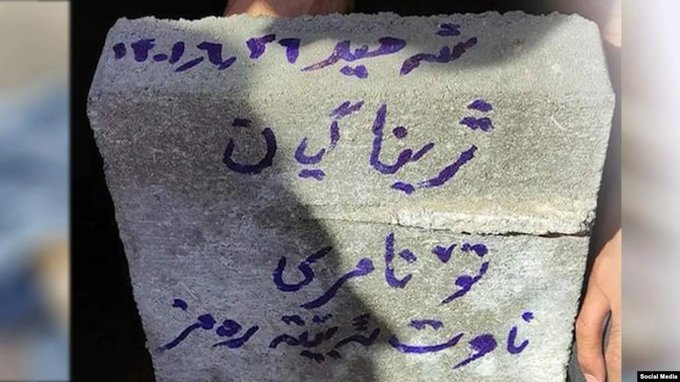 شەهید ۱۴۰۱/۶/۲۶
ژینا گیان
تۆ نامری
ناوت ئەبێتە رەمز
Social Media